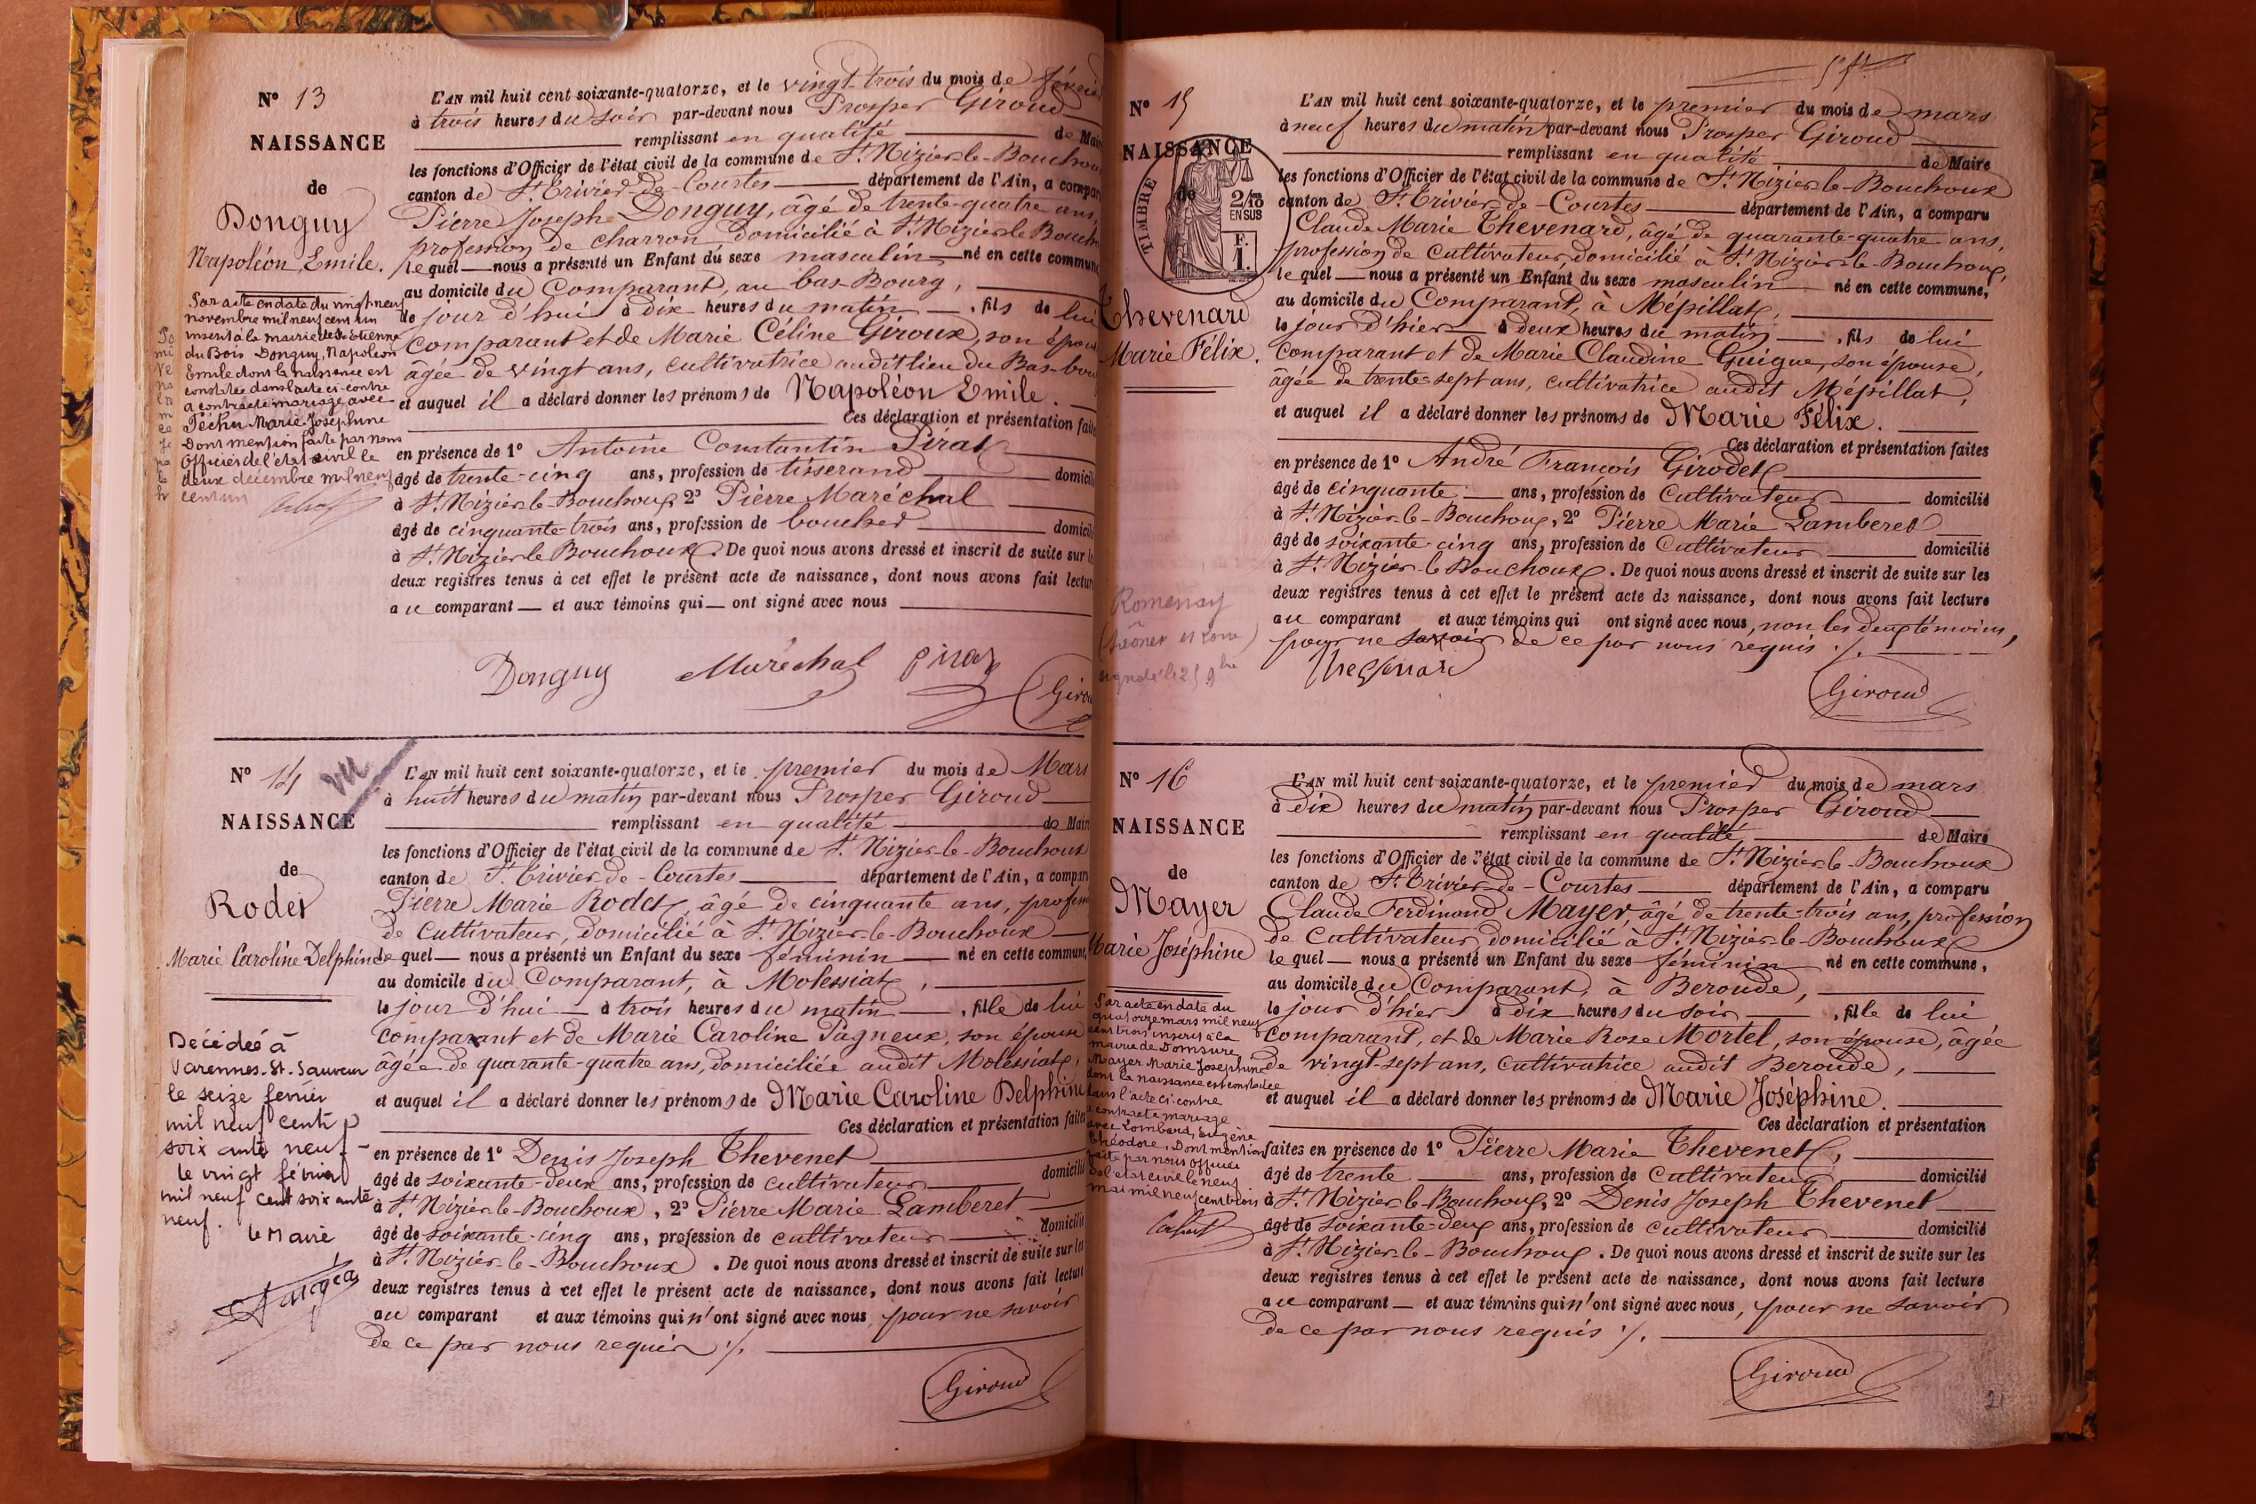 N° 13
NAISSANCE
de
Donguy
Napoléon Emile.
Par acte en date du vingt neuf
novembre mil neuf cent un
inscrit à la mairie de St Etienne
du Bois Donguy, Napoléon
Emile dont la naissance est
constatée dans l'acte ci-contre
a contracté mariage avec
Marie Joséphine
Dont mention faite par nous
Officier de l'état civil le
deux décembre mil neuf
cent un
L'AN mil huit cent soixante-quatorze, et le vingt-trois du mois de février
à trois heures du soir par-devant nous Prosper Giroud
remplissant en qualité de Maire
les fonctions d'Officier de l'état civil de la commune de St Nizier-le-Bouchoux
canton de St Trivier-de-Courtes département de l'Ain, a comparu
Pierre Joseph Donguy, âgé de trente-quatre ans,
profession de charron domicilié à St Nizier-le-Bouch
lequel nous a présenté un Enfant du sexe masculin né en cette commune
au domicile du Comparant, au bas-Bourg,
le jour d'hui à dix heures du matin, fils de lui
comparant et de Marie Céline Giroux, son épouse
âgée de vingt ans, cultivatrice audit lieu du Bas-bourg
et auquel il a déclaré donner les prénoms de Napoléon Emile.
Ces déclaration et présentation faites
en présence de 1° Antoine Constantin Pirat
âgé de trente-cinq ans, profession de tisserand domicilié
à St Nizier-le-Bouchoux 2° Pierre Maréchal
âgé de cinquante-trois ans, profession de boucher domicilié
à St Nizier le Bouchoux. De quoi nous avons dressé et inscrit de suite sur les
deux registres tenus à cet effet le présent acte de naissance, dont nous avons fait lecture
au comparant et aux témoins qui ont signé avec nous
Donguy Maréchal Pirat Giroud
N° 14
vu
NAISSANCE
de
Rodet
Marie Caroline Delphine
Décédée à
Varennes-St-Sauveur
le seize février
mil neuf cent
soixante neuf -
le vingt février
mil neuf cent soixante
neuf.
le Maire
L'AN mil huit cent soixante-quatorze, et le premier du mois de Mars
à huit heures du matin par-devant nous Prosper Giroud
remplissant en qualité de Maire
les fonctions d'Officier de l'état civil de la commune de St Nizier-le-Bouchoux
canton de St Trivier-de-Courtes département de l'Ain, a comparu
Pierre Marie Rodet, âgé de cinquante ans, profession
de Cultivateur, domicilié à St Nizier-le-Bouchoux
lequel nous a présenté un Enfant du sexe féminin né en cette commune,
au domicile du Comparant, à Molessiat,
le jour d'hui à trois heures du matin, fille de lui
comparant et de Marie Caroline Pagneux, son épouse
âgée de quarante-quatre ans, domiciliée audit Molessiat,
et auquel il a déclaré donner les prénoms de Marie Caroline Delphine
Ces déclaration et présentation faites
en présence de 1° Denis Joseph Thevenet
âgé de soixante-deux ans, profession de cultivateur domicilié
à St Nizier-le-Bouchoux, 2° Pierre Marie Lamberet
âgé de soixante-cinq ans, profession de cultivateur domicilié
à St Nizier-le-Bouchoux. De quoi nous avons dressé et inscrit de suite sur les
deux registres tenus à cet effet le présent acte de naissance, dont nous avons fait lecture
au comparant et aux témoins qui n'ont signé avec nous, pour ne savoir
de ce par nous requis ./.
Giroud
N° 15
NAISSANCE
de
TIMBRE
2/10
EN SUS
F.
1.
Thevenard
Marie Félix.
Romenay
L'AN mil huit cent soixante-quatorze, et le premier du mois de mars
à neuf heures du matin par-devant nous Prosper Giroud
remplissant en qualité de Maire
les fonctions d'Officier de l'état civil de la commune de St Nizier-le-Bouchoux
canton de St Trivier-de-Courtes département de l'Ain, a comparu
Claude Marie Thevenard, âgé de quarante-quatre ans,
profession de Cultivateur domicilié à St Nizier-le-Bouchoux,
lequel nous a présenté un Enfant du sexe masculin né en cette commune,
au domicile du Comparant, à Mépillat,
le jour d'hier à deux heures du matin, fils de lui
Comparant et de Marie Claudine Guigue, son épouse,
âgée de trente-sept ans, cultivatrice audit Mépillat,
et auquel il a déclaré donner les prénoms de Marie Félix.
Ces déclaration et présentation faites
en présence de 1° André François Girodet
âgé de cinquante ans, profession de Cultivateur domicilié
à St Nizier-le-Bouchoux, 2° Pierre Marie Lamberet
âgé de soixante-cinq ans, profession de Cultivateur domicilié
à St Nizier-le-Bouchoux. De quoi nous avons dressé et inscrit de suite sur les
deux registres tenus à cet effet le présent acte de naissance, dont nous avons fait lecture
au comparant et aux témoins qui ont signé avec nous, non les deux témoins,
pour ne savoir de ce par nous requis ./.
Thevenard
Giroud
N° 16
NAISSANCE
de
Mayer
Marie Joséphine
Par acte en date du
quatorze mars mil neuf
cent trois inscrit à la
mairie de Domsure
Mayer Marie Joséphine
dont la naissance est constatée
dans l'acte ci-contre
a contracté mariage
avec Lombard, Eugène
Théodore. Dont mention
faite par nous officier
de l'état civil le neuf
mai mil neuf cent trois
L'AN mil huit cent soixante-quatorze, et le premier du mois de mars
à dix heures du matin par-devant nous Prosper Giroud
remplissant en qualité de Maire
les fonctions d'Officier de l'état civil de la commune de St Nizier-le-Bouchoux
canton de St Trivier-de-Courtes département de l'Ain, a comparu
Claude Ferdinand Mayer, âgé de trente-trois ans, profession
de Cultivateur domicilié à St Nizier-le-Bouchoux
lequel nous a présenté un Enfant du sexe féminin né en cette commune,
au domicile du Comparant, à Beroude,
le jour d'hier à dix heures du soir, fille de lui
comparant, et de Marie Rose Mortel, son épouse, âgée
de vingt-sept ans, cultivatrice audit Beroude,
et auquel il a déclaré donner les prénoms de Marie Joséphine.
Ces déclaration et présentation
faites en présence de 1° Pierre Marie Thevenet,
âgé de trente ans, profession de Cultivateur domicilié
à St Nizier-le-Bouchoux, 2° Denis Joseph Thevenet
âgé de soixante-deux ans, profession de cultivateur domicilié
à St Nizier-le-Bouchoux. De quoi nous avons dressé et inscrit de suite sur les
deux registres tenus à cet effet le présent acte de naissance, dont nous avons fait lecture
au comparant et aux témoins qui n'ont signé avec nous, pour ne savoir
de ce par nous requis ./.
Giroud
21